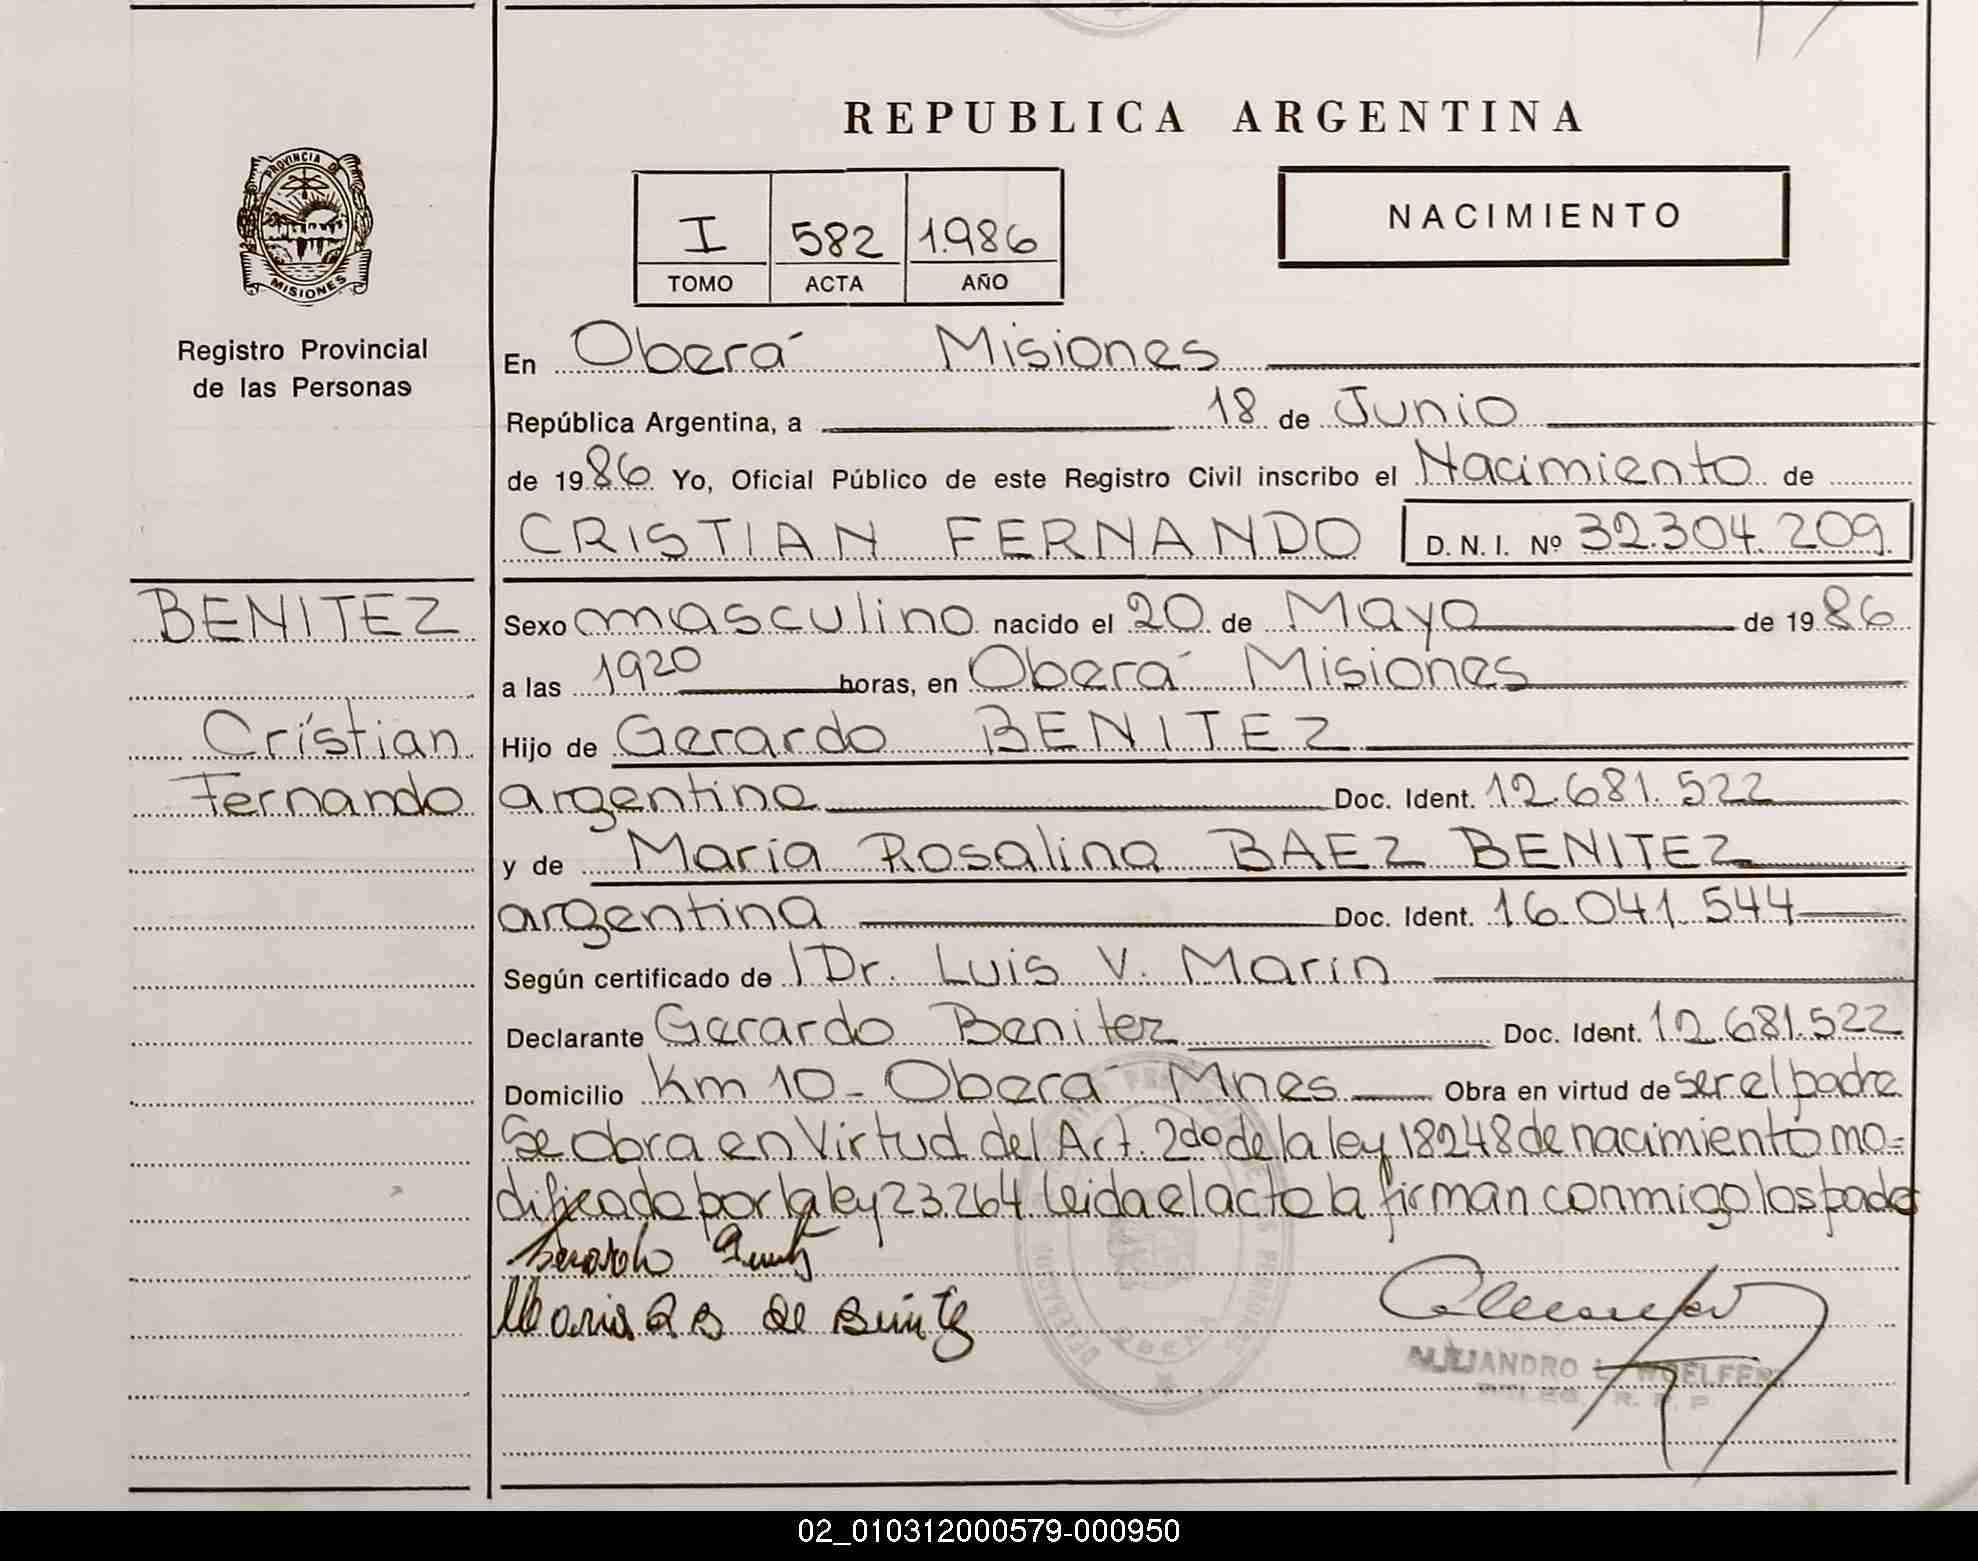 REPUBLICA ARGENTINA
PROVINCIA DE
MISIONES
Registro Provincial
de las Personas
I 582 1.986
TOMO ACTA AÑO
NACIMIENTO
En Oberá Misiones
República Argentina, a 18 de Junio
de 1986 Yo, Oficial Público de este Registro Civil inscribo el Nacimiento de
CRISTIAN FERNANDO D.N.I. Nº 32.304.209
BENITEZ
Cristian
Fernando
Sexo masculino nacido el 20 de Mayo de 1986
a las 1920 horas, en Oberá Misiones
Hijo de Gerardo BENITEZ
argentino Doc. Ident. 12.681.522
y de María Rosalina BAEZ BENITEZ
argentina Doc. Ident. 16.041.544
Según certificado de Dr. Luis V. Marin
Declarante Gerardo Benitez Doc. Ident. 12.681.522
Domicilio Km 10 - Oberá Mnes Obra en virtud de ser el padre
Se obra en Virtud del Art. 2do de la ley 18248 de nacimiento mo=
dificado por la ley 23.264 leida el acto la firman conmigo los padres
Maria R B de Benitez
ALEJANDRO L. WOELFERT
R. P. P
OBERA
02_010312000579-000950